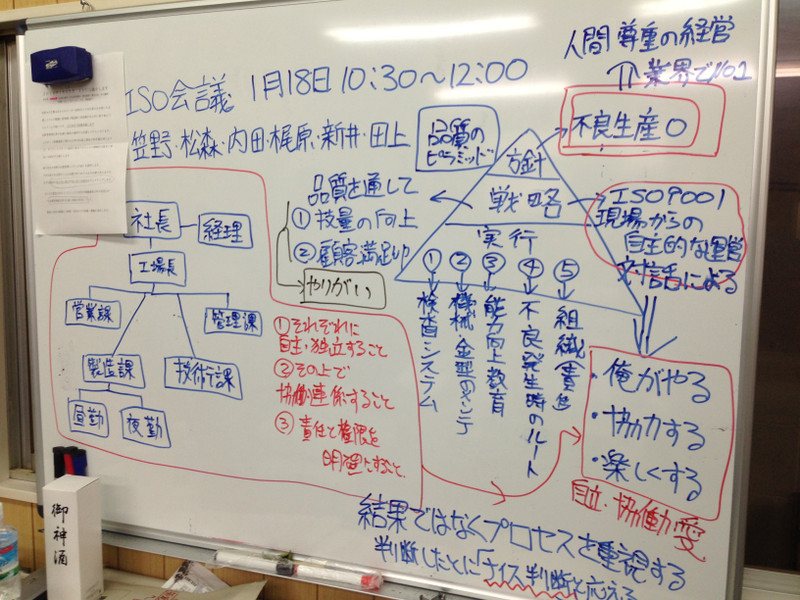 人間尊重の経営
⇑業界でNo1
ISO会議 1月18日 10:30〜12:00
笠野・松森・内田・梶原・新井・田上
品質の
ピラミッド
方針
不良生産0
戦略
ISO9001
現場からの
自主的な運営
対話による
品質を通して
①技量の向上
②顧客満足up
やりがい
実行
①検査システム
②機械・金型のメンテ
③能力向上教育
④不良発生時のルート
⑤組織責任
社長
経理
工場長
営業課
管理課
製造課
技術課
昼勤
夜勤
①それぞれに
自主・独立すること
②その上で
協働連係すること
③責任と権限を
明確にすること、
・俺がやる
・協力する
・楽しくする
自立・協働・愛
結果ではなくプロセスを重視する
判断したことに「ナイス判断」と応える
御神酒